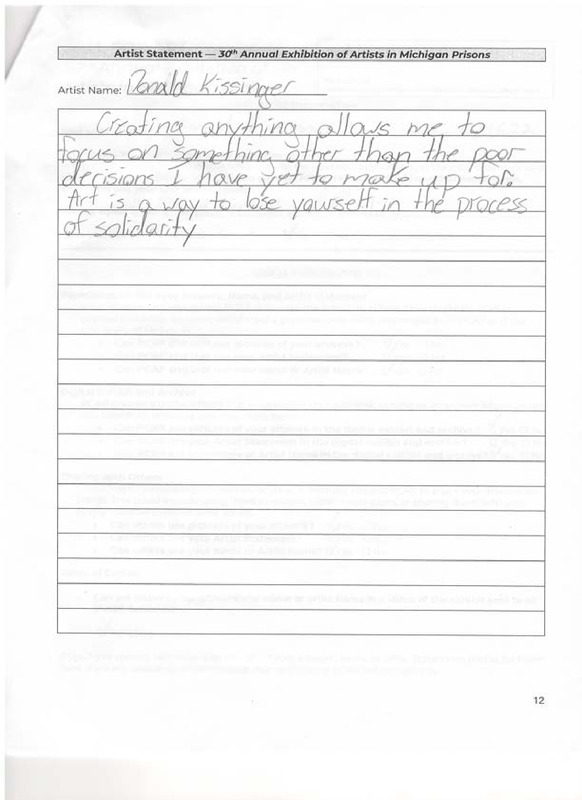 Artist Statement — 30th Annual Exhibition of Artists in Michigan Prisons
Artist Name: Donald Kissinger
Creating anything allows me to
focus on something other than the poor
decisions I have yet to make up for.
Art is a way to lose yourself in the process
of solidarity
12